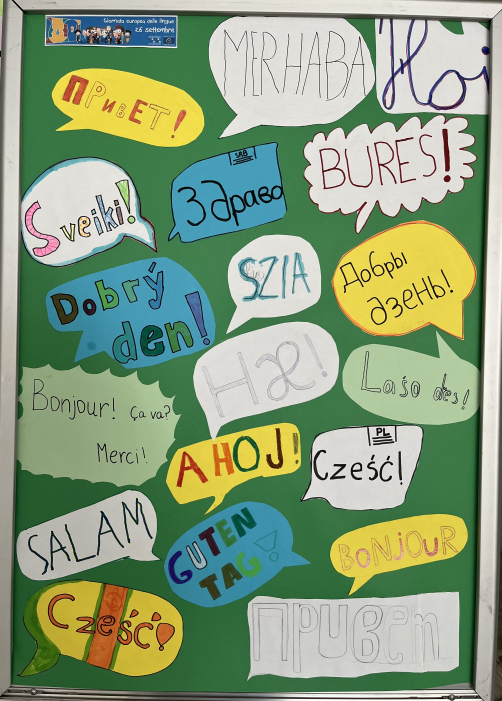 Giornata europea delle lingue
26 settembre
MERHABA
Hoi
ПРИВЕТ!
SRB
Здраво
BURES!
Sveiki!
SZIA
Добры
дзень!
Dobrý
den!
Hæ!
Laśo des!
Bonjour! Ça va?
Merci!
AHOJ!
PL
Cześć!
SALAM
GUTEN
TAG!
BONJOUR
Cześć!
Привет